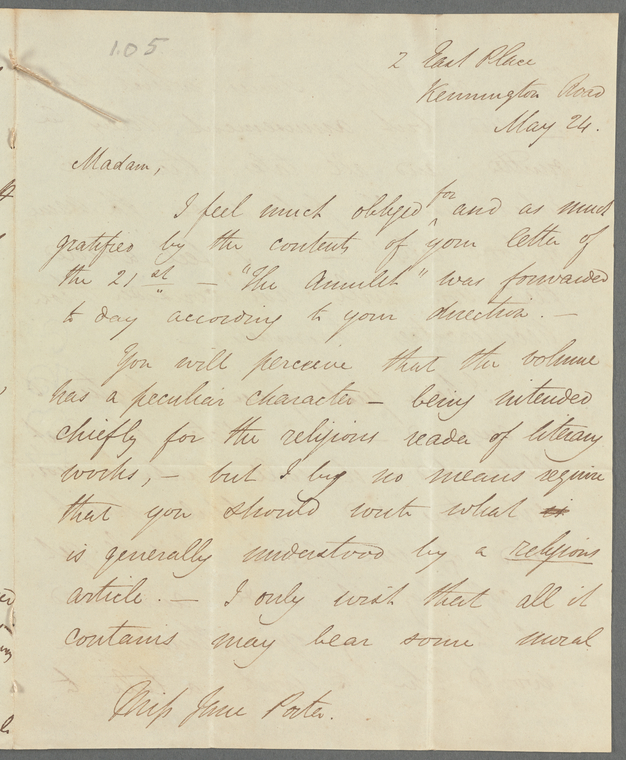 105
2 East Place
Kennington Road
May 24.
Madam,
I feel much obliged ^for and as much
gratified by the contents of your letter of
the 21st — "The Amulet" was forwarded
to day according to your direction. —
You will perceive that the volume
has a peculiar character — being intended
chiefly for the religious reader of literary
works, — but I by no means require
that you should write what is
is generally understood by a religious
article. — I only wish that all it
contains may bear some moral
Miss Jane Porter.